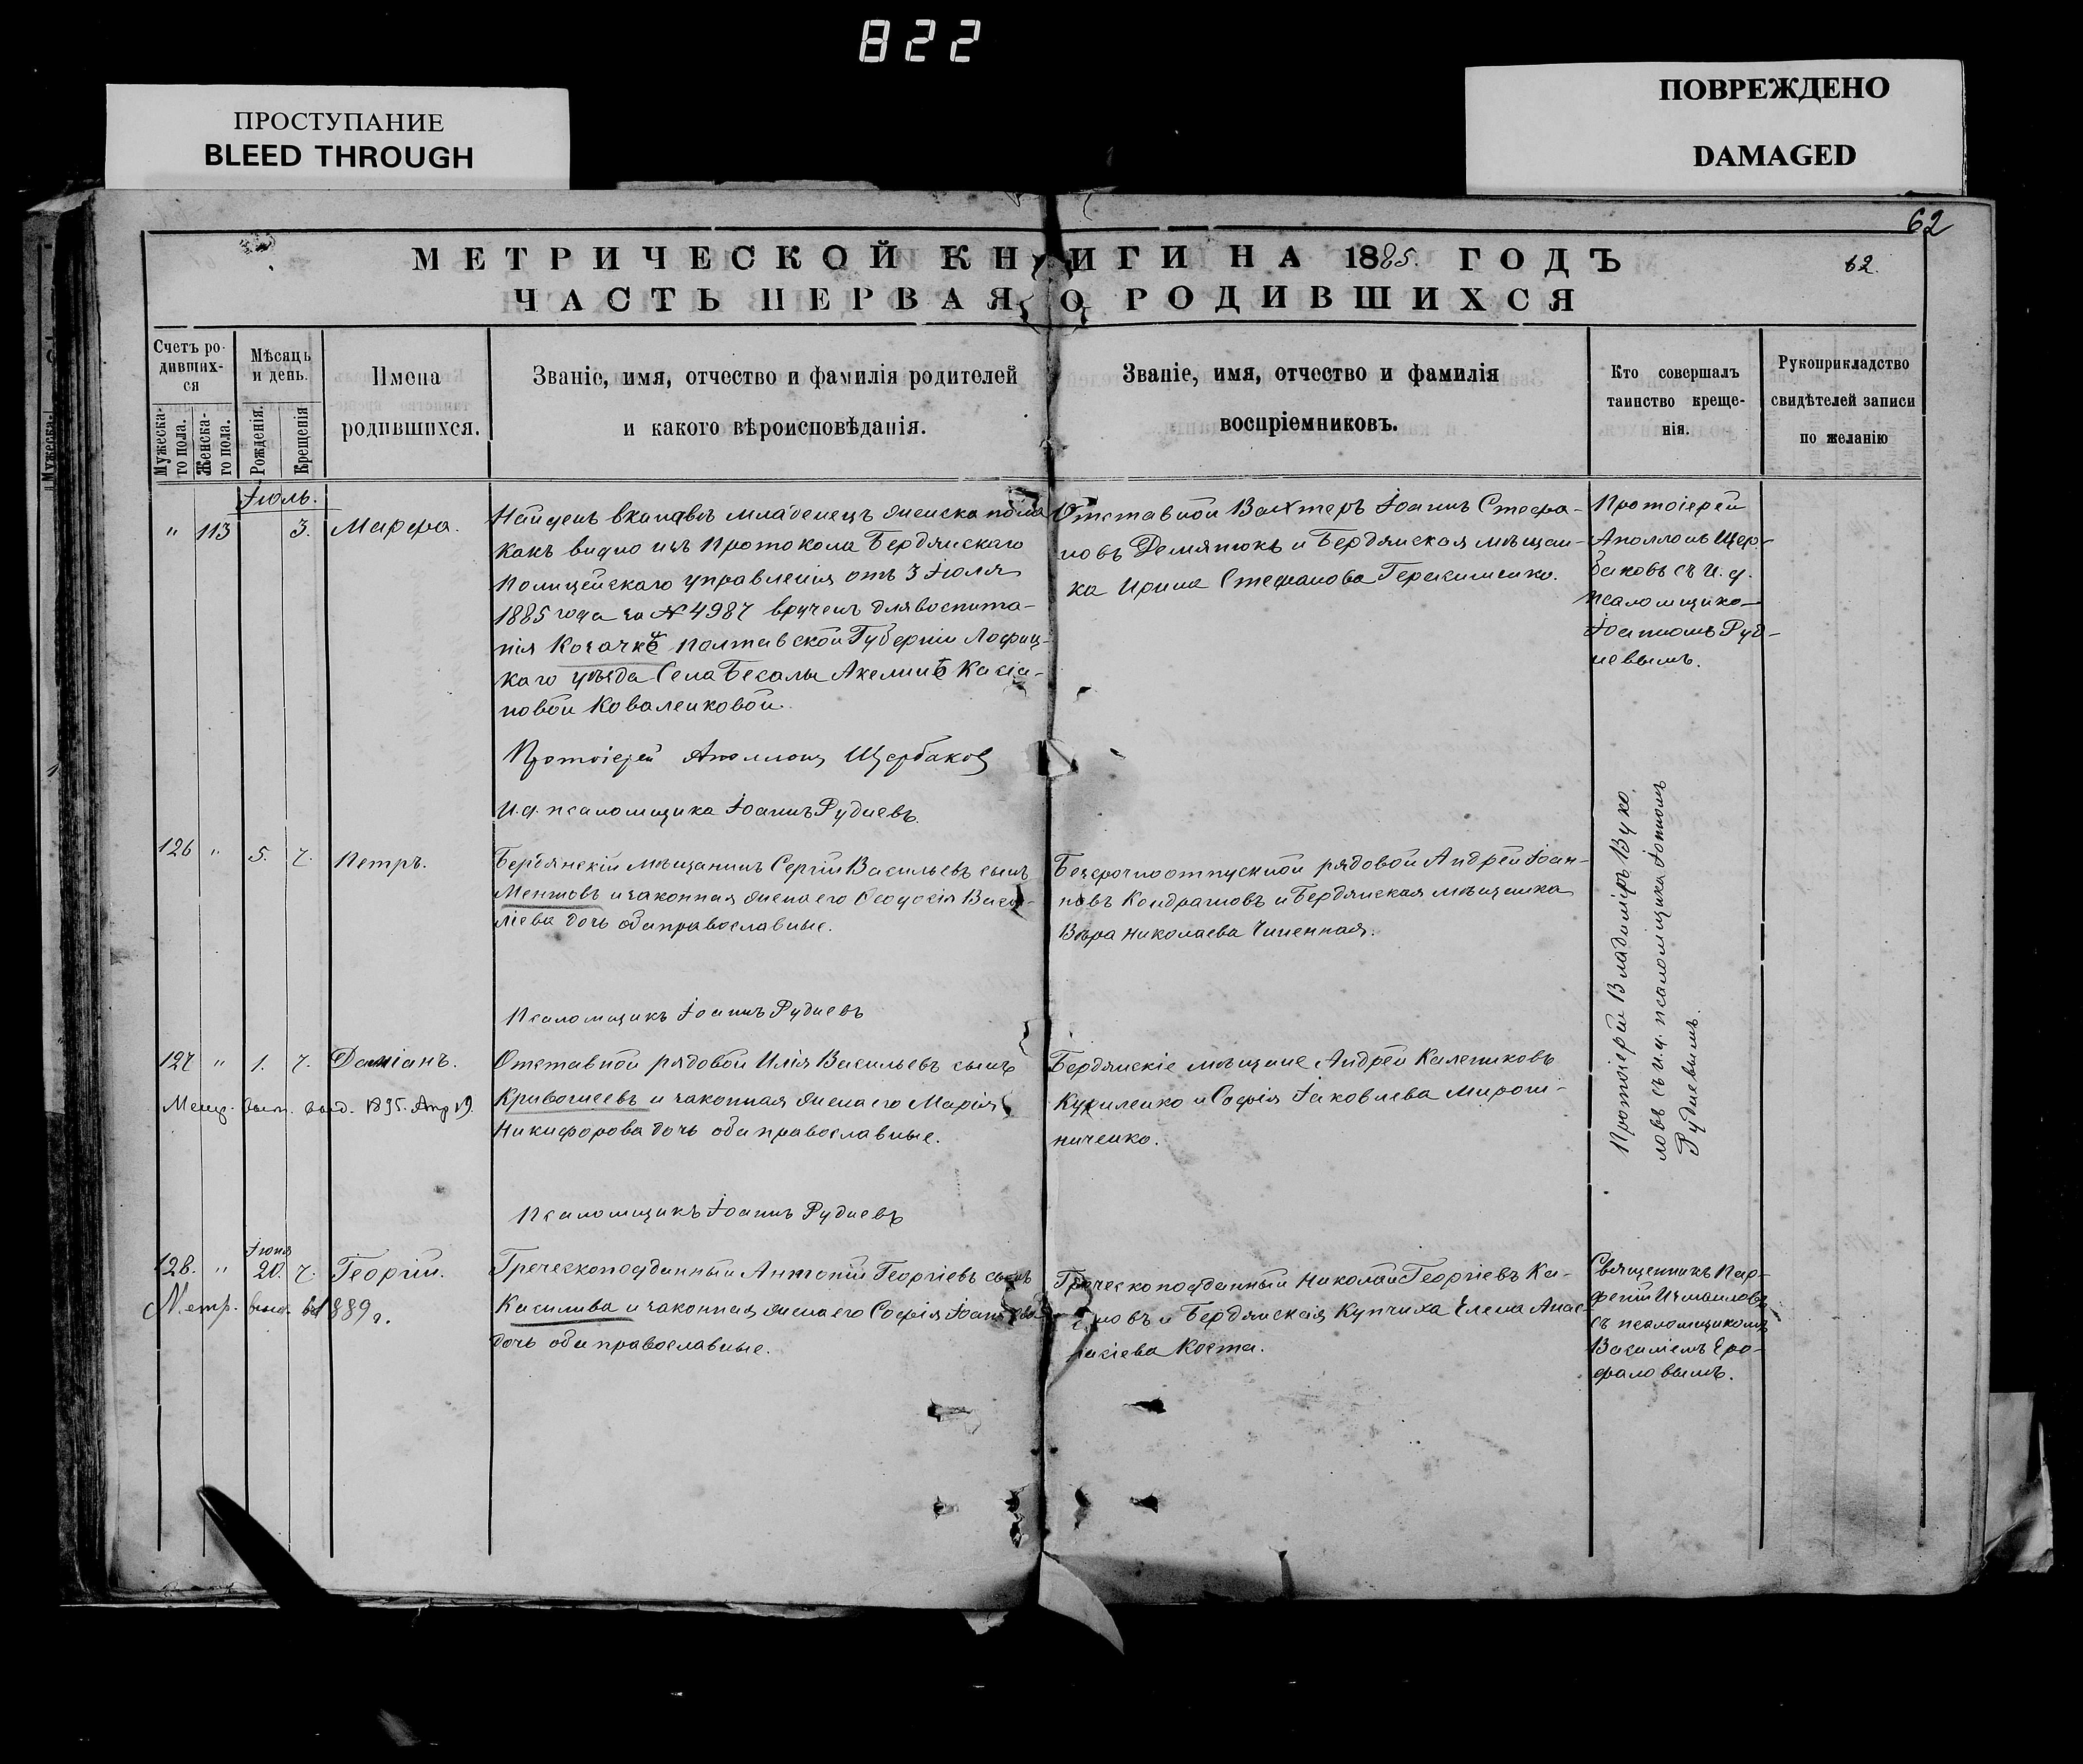 822
ПРОСТУПАНИЕ
BLEED THROUGH
ПОВРЕЖДЕНО
DAMAGED
62
МЕТРИЧЕСКОЙ КНИГИ НА 1885. ГОДЪ
62.
ЧАСТЬ ПЕРВАЯ О РОДИВШИХСЯ
Счетъ ро-
дивших-
ся
Мужеска-
го пола.
Женска-
го пола.
Мѣсяць
и день.
Рожденія.
Крещенія
Имена
родившихся.
Званіе, имя, отчество и фамилія родителей
и какого вѣроисповѣданія.
Званіе, имя, отчество и фамилія
воспріемниковъ.
Кто совершалъ
таинство креще-
нія.
Рукоприкладство
свидѣтелей записи
по желанію
Мужеска-
Іюль.
" 113 3. Марфа.
Найденъ вканавѣ младенецъ женска пола
какъ видно изъ Протокола Бердянскаго
Полицейскаго управленія отъ 3 Іюля
1885 года за № 4987 врученъ для воспита-
нія Козачкѣ Полтавской Губерніи
каго уѣзда Села Акелинѣ Касіа-
новой Коваленковой.
Отставной Вахтеръ Іоаннъ Стефа-
новъ Демянюкъ и Бердянская мѣщан-
ка Ирина Стефанова Герасименко.
Протоіерей
Аполлонъ Щер-
баковъ съ и. д.
псаломщико-
Іоанномъ Руд-
невымъ.
Протоіерей Аполлонъ Щербаковъ
И. д. псаломщика Іоаннъ Рудневъ.
126 " 5. 7. Петръ.
Бердянскій Мѣщанинъ Сергій Васильевъ сынъ
Ментовъ и законная жена его Феодосія Васи-
ліева дочь оба православные.
Безсрочноотпускной рядовой Андрей Іоан-
новъ Кондрашовъ и Бердянская мѣщанка
Вѣра Николаева
Протоіерей Владиміръ Вуко-
ловъ съ и. д. псаломщика Іоанномъ
Рудневымъ.
Псаломщикъ Іоаннъ Рудневъ
127 " 1. 7. Даміанъ.
Отставной рядовой Илія Васильевъ сынъ
Кривошеевъ и законная жена его Марія
Никифорова дочь оба православные.
выд. 1895. Апр 19.
Бердянскіе мѣщане Андрей Калениковъ
Куриленко и Софія Іаковлева Мирош-
ниченко.
Псаломщикъ Іоаннъ Рудневъ
Іюня
128. " 20. 7. Георгій.
Греческоподданный Антоній Георгіевъ сынъ
и законная жена его Софія
дочь оба православные.
Метр. выд. въ 1889 г.
Греческоподданный Николай Георгіевъ Ка-
новъ и Бердянская Купчиха Елена Анас-
тасіева Коста.
Священникъ Пар-
феній Измаиловъ
съ псаломщикомъ
Василіемъ Еро-
фаловымъ.